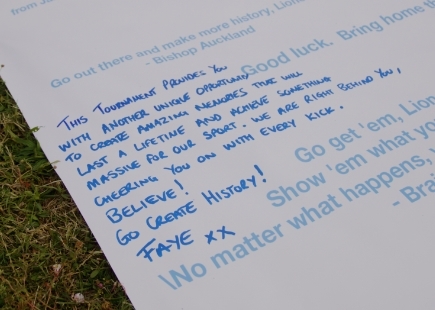 from Ja
Go out there and make more history, Lione
- Bishop Auckland
Good luck. Bring home th
THIS TOURNAMENT PROVIDES YOU
WITH ANOTHER UNIQUE OPPORTUNITY
TO CREATE AMAZING MEMORIES THAT WILL
LAST A LIFETIME AND ACHIEVE SOMETHING
MASSIVE FOR OUR SPORT. WE ARE RIGHT BEHIND YOU,
CHEERING YOU ON WITH EVERY KICK.
BELIEVE!
GO CREATE HISTORY!
FAYE XX
Go get 'em, Lion
Show 'em what you
No matter what happens, y
- Brai